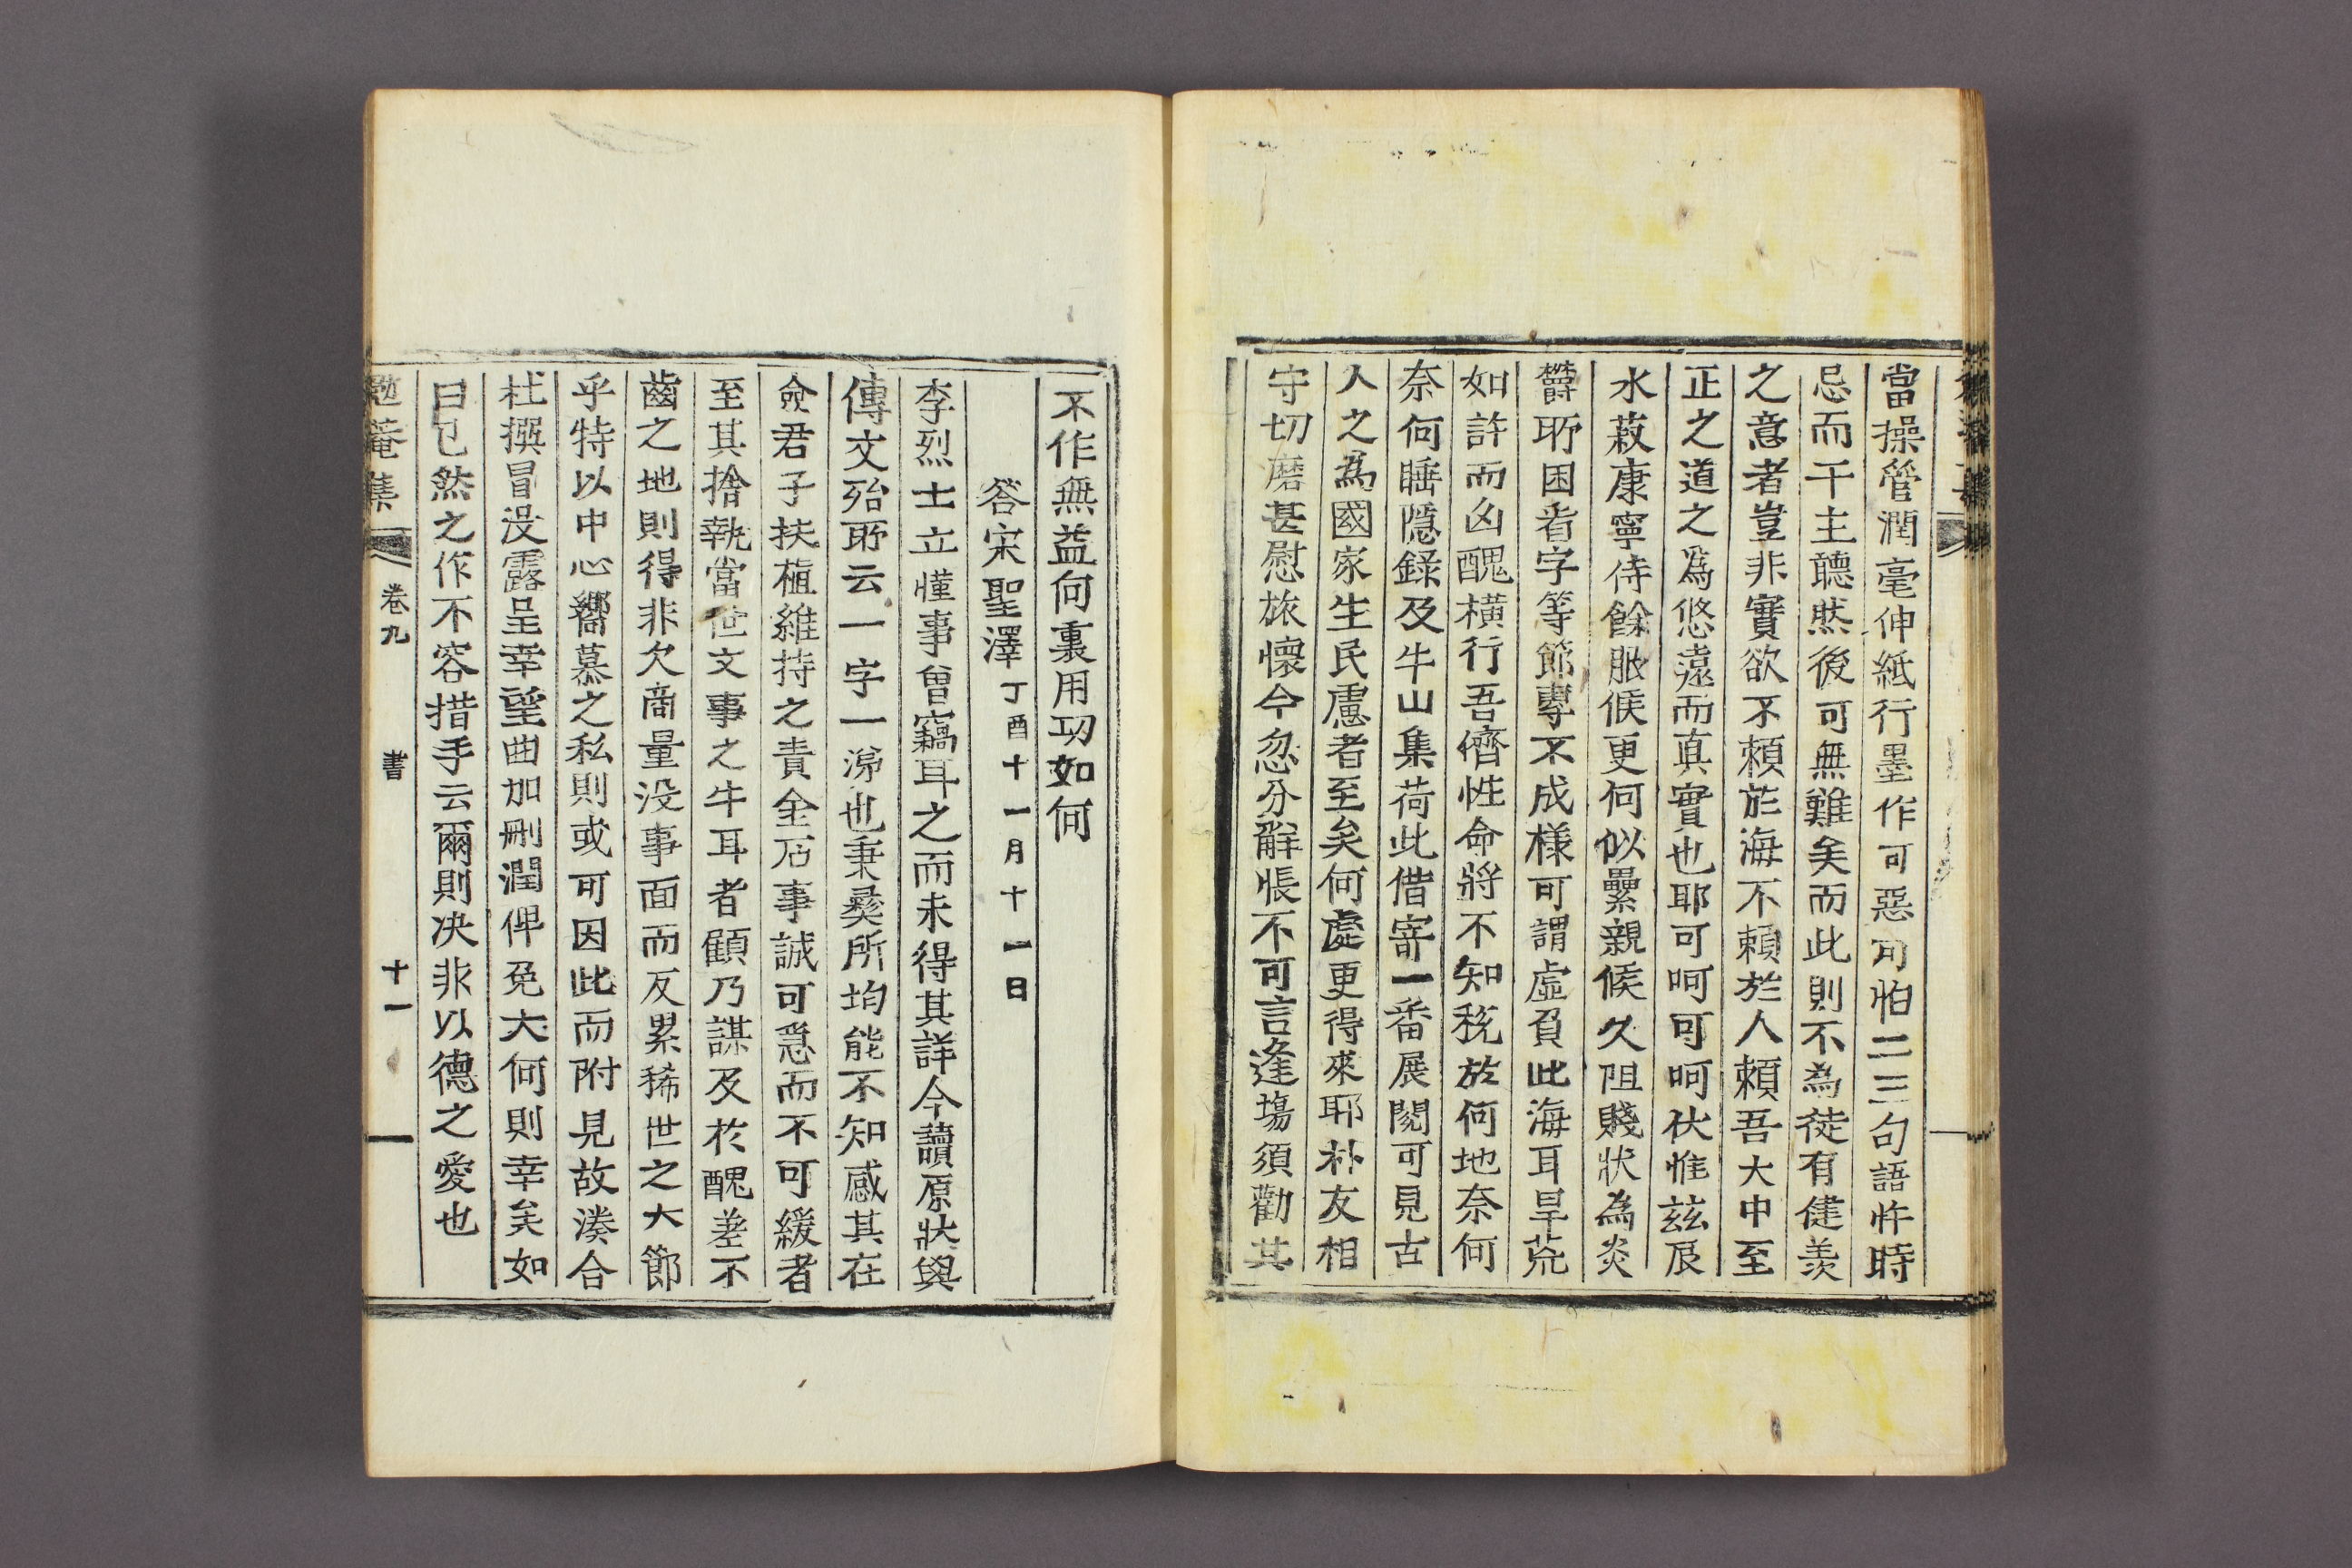 當操管潤毫伸紙行墨作可惡可怕二三句語忤時
忌而干主聽然後可無難矣而此則不為徒有健羨
之意者豈非實欲不頼於海不頼於人頼吾大中至
正之道之爲悠遠而真實也耶可呵可呵伏惟玆辰
水菽康寧侍餘服候更何似纍親候久阻賤狀為炎
欝所困看字等節專不成樣可謂虛負此海耳旱荒
如許而凶醜橫行吾儕性命將不知稅於何地奈何
奈何睡隱錄及牛山集荷此借寄一番展閱可見古
人之爲國家生民慮者至矣何處更得來耶朴友相
守切磨甚慰旅懷今忽分觧悵不可言逢塲須勸其
不作無益何裏用功如何
答宋聖澤丁酉十一月十一日
李烈士立慬事曾竊耳之而未得其詳今讀原狀與
傳文殆所云一字一涕也秉彜所均能不知感其在
僉君子扶植維持之責金石事誠可急而不可緩者
至其捨執當世文事之牛耳者顧乃謀及於醜差不
齒之地則得非欠商量没事面而反累稀世之大節
乎特以中心嚮慕之私則或可因此而附見故湊合
杜撰冒没露呈幸望曲加刪潤俾免大何則幸矣如
曰已然之作不容措手云爾則决非以德之愛也
菴集
卷九
書
十一